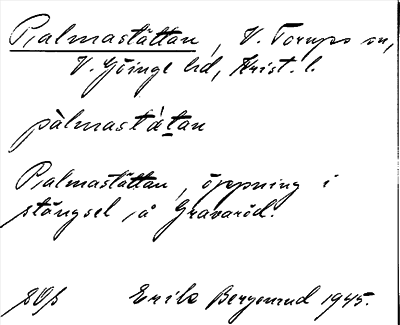 Palmastättan, V. Torups sn,
V. Göinge hd, Krist. l.
pàlmastàtan
Palmastättan, öppning i
stängsel på Gravaröd.
Erik Bergenrud 1945.